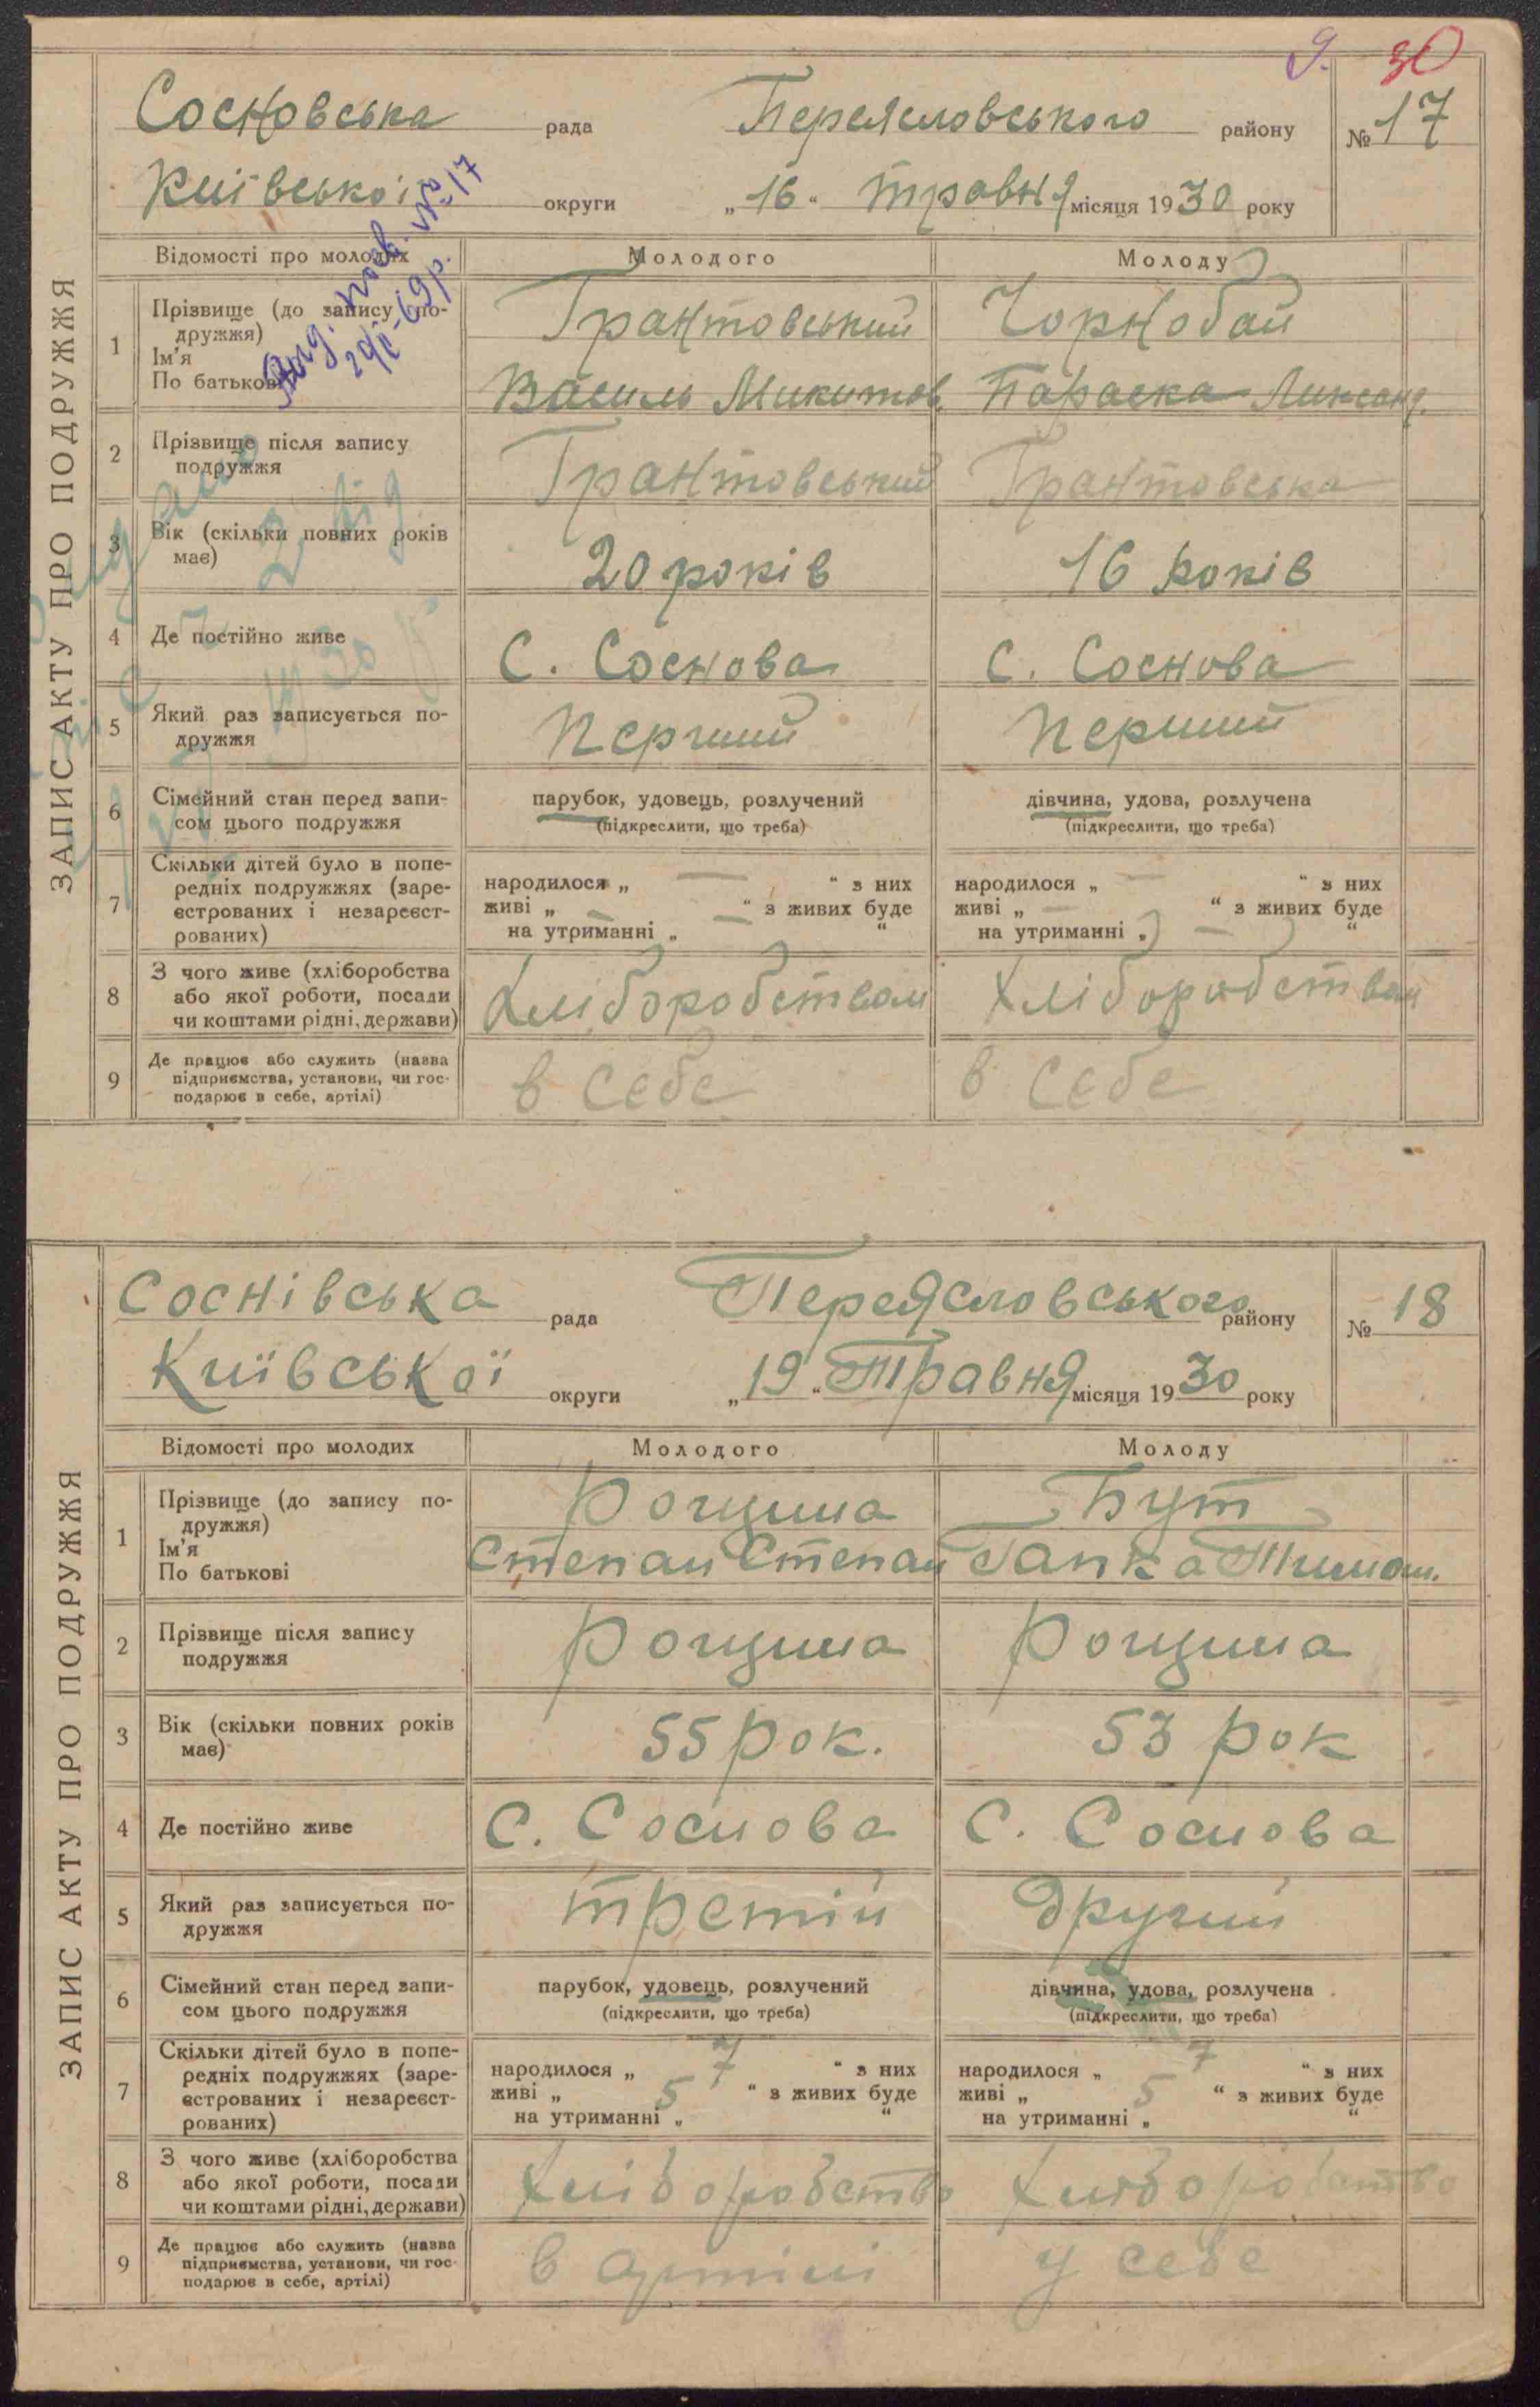 9. 30
Сосновська рада Переясловського району № 17
Київської округи „16“ травня місяця 1930 року
ЗАПИС АКТУ ПРО ПОДРУЖЖЯ
Відомості про молодих Молодого Молоду
1 Прізвище (до запису по-
дружжя)
Ім'я
По батькові
Грантовський Чорнобай
Василь Микитов. Параска Ликсанд.
№ 17
2 Прізвище після запису
подружжя
Грантовський Грантовська
3 Вік (скільки повних років
має)
20 років 16 років
4 Де постійно живе С. Соснова С. Соснова
5 Який раз записується по-
дружжя
Перший Перший
6 Сімейний стан перед запи-
сом цього подружжя
парубок, удовець, розлучений дівчина, удова, розлучена
(підкреслити, що треба) (підкреслити, що треба)
7 Скільки дітей було в попе-
редніх подружжях (заре-
єстрованих і незареєст-
рованих)
народилося „ — “ з них народилося „ — “ з них
живі „ — “ з живих буде живі „ — “ з живих буде
на утриманні „ — “ на утриманні „ — “
8 З чого живе (хліборобства
або якої роботи, посади
чи коштами рідні, держави)
Хліборобством Хліборобством
9 Де працює або служить (назва
підприємства, установи, чи гос-
подарює в себе, артілі)
в себе в себе
Соснівська рада Переясловського району № 18
Київської округи „19“ Травня місяця 1930 року
ЗАПИС АКТУ ПРО ПОДРУЖЖЯ
Відомості про молодих Молодого Молоду
1 Прізвище (до запису по-
дружжя)
Ім'я
По батькові
Рощина Бут
Степан Степан Гапка Тимош.
2 Прізвище після запису
подружжя
Рощина Рощина
3 Вік (скільки повних років
має)
55 рок. 53 рок
4 Де постійно живе С. Соснова С. Соснова
5 Який раз записується по-
дружжя
третій другий
6 Сімейний стан перед запи-
сом цього подружжя
парубок, удовець, розлучений дівчина, удова, розлучена
(підкреслити, що треба) (підкреслити, що треба)
7 Скільки дітей було в попе-
редніх подружжях (заре-
єстрованих і незареєст-
рованих)
народилося „ 7 “ з них народилося „ 7 “ з них
живі „ 5 “ з живих буде живі „ 5 “ з живих буде
на утриманні „ “ на утриманні „ “
8 З чого живе (хліборобства
або якої роботи, посади
чи коштами рідні, держави)
Хліборобство Хліборобство
9 Де працює або служить (назва
підприємства, установи, чи гос-
подарює в себе, артілі)
в артілі у себе